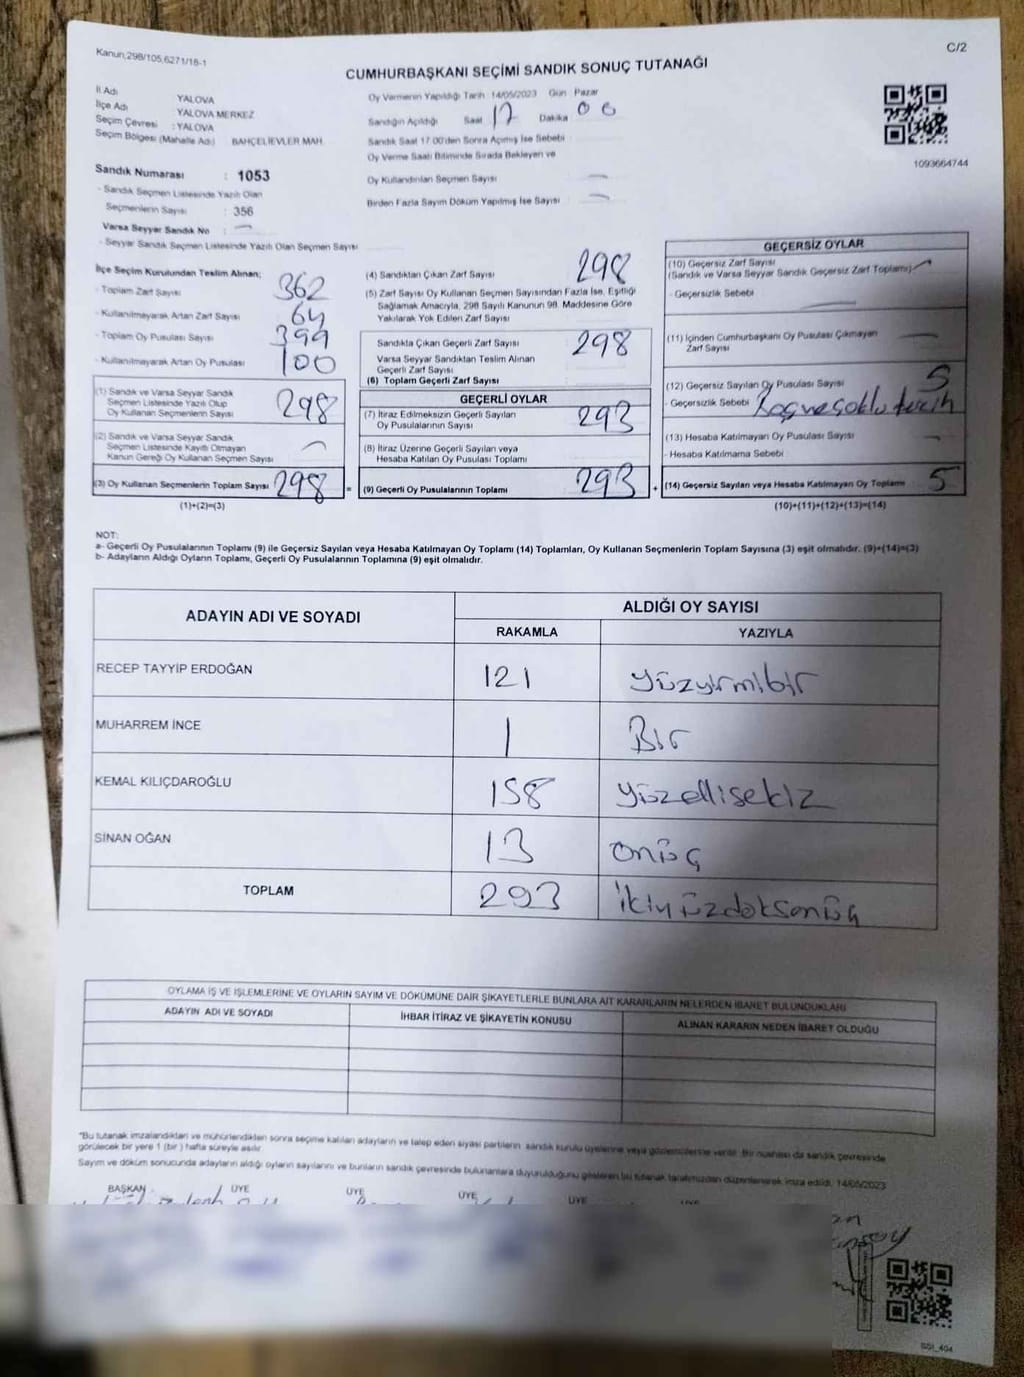 Kanun,298/105,6271/18-1
C/2
CUMHURBAŞKANI SEÇİMİ SANDIK SONUÇ TUTANAĞI
İl Adı YALOVA
İlçe Adı YALOVA MERKEZ
Seçim Çevresi : YALOVA
Seçim Bölgesi (Mahalle Adı) BAHÇELİEVLER MAH.
Oy Vermenin Yapıldığı Tarih 14/05/2023 Gün Pazar
Sandığın Açıldığı Saat 17 Dakika 06
Sandık Saat 17.00'den Sonra Açımış İse Sebebi
Oy Verme Saati Bitiminde Sırada Bekleyen ve
Oy Kullandırılan Seçmen Sayısı
Birden Fazla Sayım Döküm Yapılmış İse Sayısı
1093664744
Sandık Numarası : 1053
- Sandık Seçmen Listesinde Yazılı Olan
Seçmenlerin Sayısı : 356
Varsa Seyyar Sandık No :
- Seyyar Sandık Seçmen Listesinde Yazılı Olan Seçmen Sayısı
İlçe Seçim Kurulundan Teslim Alınan;
- Toplam Zarf Sayısı 362
- Kullanılmayarak Artan Zarf Sayısı 64
- Toplam Oy Pusulası Sayısı 399
- Kullanılmayarak Artan Oy Pusulası 100
(1) Sandık ve Varsa Seyyar Sandık
Seçmen Listesinde Yazılı Olup
Oy Kullanan Seçmenlerin Sayısı 298
(2) Sandık ve Varsa Seyyar Sandık
Seçmen Listesinde Kayıtlı Olmayan
Kanun Gereği Oy Kullanan Seçmen Sayısı
(3) Oy Kullanan Seçmenlerin Toplam Sayısı 298 =
(1)+(2)=(3)
(4) Sandıktan Çıkan Zarf Sayısı 298
(5) Zarf Sayısı Oy Kullanan Seçmen Sayısından Fazla İse, Eşitliği
Sağlamak Amacıyla, 298 Sayılı Kanunun 98. Maddesine Göre
Yakılarak Yok Edilen Zarf Sayısı
Sandıkla Çıkan Geçerli Zarf Sayısı 298
Varsa Seyyar Sandıktan Teslim Alınan
Geçerli Zarf Sayısı
(6) Toplam Geçerli Zarf Sayısı
GEÇERLİ OYLAR
(7) İtiraz Edilmeksizin Geçerli Sayılan
Oy Pusulalarının Sayısı 293
(8) İtiraz Üzerine Geçerli Sayılan veya
Hesaba Katılan Oy Pusulası Toplamı
(9) Geçerli Oy Pusulalarının Toplamı 293 +
GEÇERSİZ OYLAR
(10) Geçersiz Zarf Sayısı
(Sandık ve Varsa Seyyar Sandık Geçersiz Zarf Toplamı)
- Geçersizlik Sebebi
(11) İçinden Cumhurbaşkanı Oy Pusulası Çıkmayan
Zarf Sayısı
(12) Geçersiz Sayılan Oy Pusulası Sayısı 5
- Geçersizlik Sebebi Boş ve çoklu tercih
(13) Hesaba Katılmayan Oy Pusulası Sayısı
- Hesaba Katılmama Sebebi
(14) Geçersiz Sayılan veya Hesaba Katılmayan Oy Toplamı 5
(10)+(11)+(12)+(13)=(14)
NOT:
a- Geçerli Oy Pusulalarının Toplamı (9) ile Geçersiz Sayılan veya Hesaba Katılmayan Oy Toplamı (14) Toplamları, Oy Kullanan Seçmenlerin Toplam Sayısına (3) eşit olmalıdır. (9)+(14)=(3)
b- Adayların Aldığı Oyların Toplamı, Geçerli Oy Pusulalarının Toplamına (9) eşit olmalıdır.
ADAYIN ADI VE SOYADI ALDIĞI OY SAYISI
RAKAMLA YAZIYLA
RECEP TAYYİP ERDOĞAN 121 yüzyirmibir
MUHARREM İNCE 1 Bir
KEMAL KILIÇDAROĞLU 158 yüzellisekiz
SİNAN OĞAN 13 onüç
TOPLAM 293 ikiyüzdoksanüç
OYLAMA İŞ VE İŞLEMLERİNE VE OYLARIN SAYIM VE DÖKÜMÜNE DAİR ŞİKAYETLERLE BUNLARA AİT KARARLARIN NELERDEN İBARET BULUNDUKLARI
ADAYIN ADI VE SOYADI İHBAR İTİRAZ VE ŞİKAYETİN KONUSU ALINAN KARARIN NEDEN İBARET OLDUĞU
*Bu tutanak imzalandıktan ve mühürlendikten sonra seçime katılan adayların ve talep eden siyasi partilerin sandık kurulu üyelerine veya gözlemcilerine verilir. Bir nüshası da sandık çevresinde
görülecek bir yere 1 (bir) hafta süreyle asılır.
Sayım ve döküm sonucunda adayların aldığı oyların sayılarını ve bunların sandık çevresinde bulunanlara duyurulduğunu gösteren bu tutanak tarafımızdan düzenlenerek imza edildi. 14/05/2023
BAŞKAN ÜYE ÜYE ÜYE ÜYE ÜYE